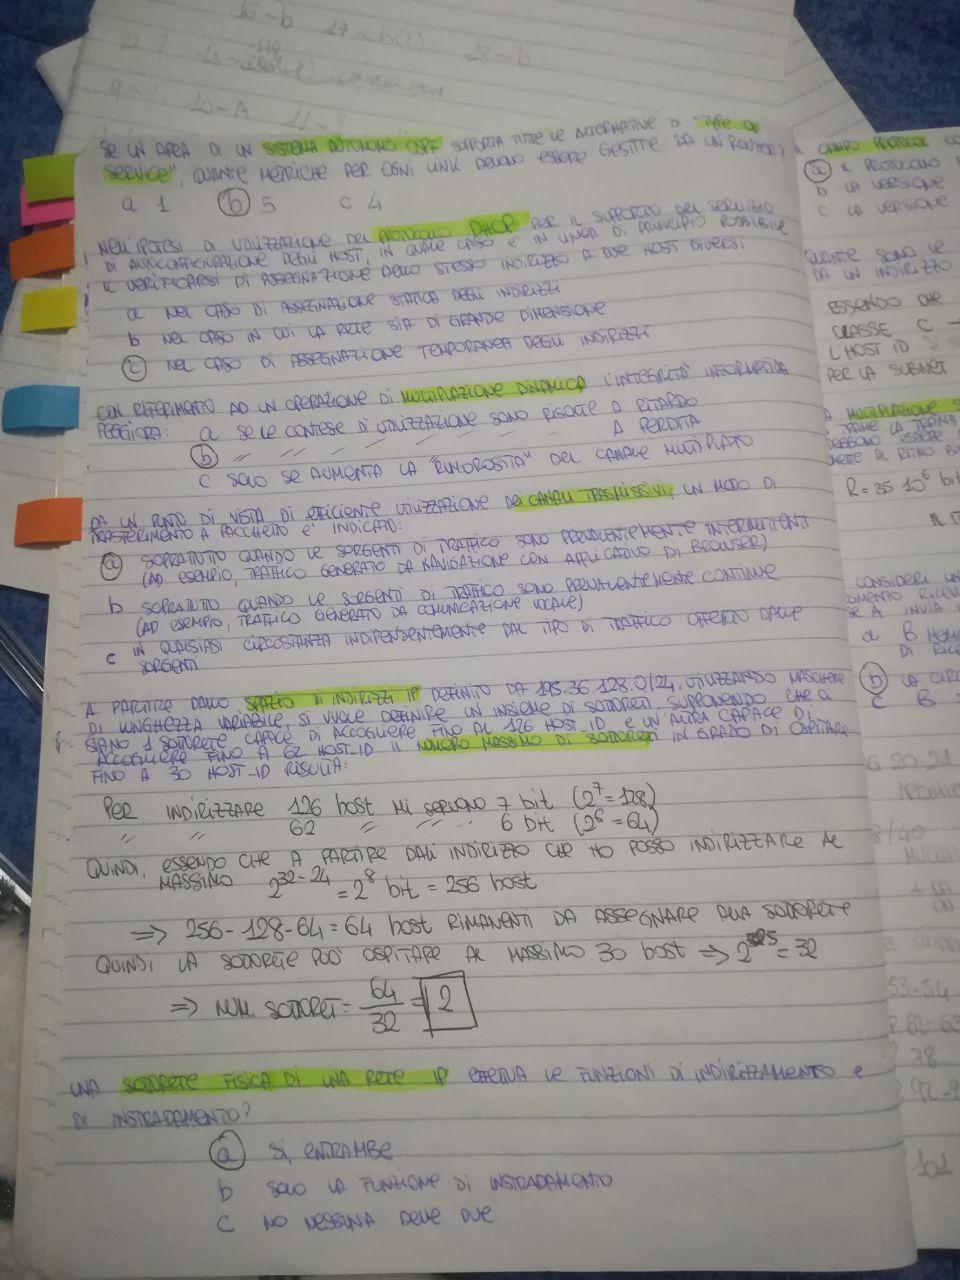 16 - b
17 - b(?)
18 - b
10 - A
SE UN AREA DI UN SISTEMA AUTONOMO OSPF SUPPORTA TUTTE LE ALTERNATIVE DI "TYPE OF
SERVICE", QUANTE METRICHE PER OGNI LINK DEVONO ESSERE GESTITE DA UN ROUTER?
a 1 b 5 c 4
NELL'IPOTESI DI UTILIZZAZIONE DEL PROTOCOLLO DHCP PER IL SUPPORTO DEL SERVIZIO
DI AUTOCONFIGURAZIONE DEGLI HOST, IN QUALE CASO E' IN LINEA DI PRINCIPIO POSSIBILE
IL VERIFICARSI DI ASSEGNAZIONE DELLO STESSO INDIRIZZO A DUE HOST DIVERSI
a NEL CASO DI ASSEGNAZIONE STATICA DEGLI INDIRIZZI
b NEL CASO IN CUI LA RETE SIA DI GRANDE DIMENSIONE
c NEL CASO DI ASSEGNAZIONE TEMPORANEA DEGLI INDIRIZZI
CON RIFERIMENTO AD UN OPERAZIONE DI MULTIPLAZIONE DINAMICA L'INTEGRITA' INFORMATIVA
PEGGIORA: a SE LE CONTESE DI UTILIZZAZIONE SONO RISOLTE A RITARDO
b " " " " " " " A PERDITA
c SOLO SE AUMENTA LA "RUMOROSITA'" DEL CANALE MULTIPLATO
DA UN PUNTO DI VISTA DI EFFICIENTE UTILIZZAZIONE DEI CANALI TRASMISSIVI, UN MODO DI
TRASFERIMENTO A PACCHETTO E' INDICATO:
a SOPRATUTTO QUANDO LE SORGENTI DI TRAFFICO SONO PREVALENTEMENTE INTERMITTENTI
(AD ESEMPIO, TRAFFICO GENERATO DA NAVIGAZIONE CON APPLICATIVO DI BROWSER)
b SOPRATUTTO QUANDO LE SORGENTI DI TRAFFICO SONO PREVALENTEMENTE CONTINUE
(AD ESEMPIO, TRAFFICO GENERATO DA COMUNICAZIONE VOCALE)
c IN QUALSIASI CIRCOSTANZA INDIPENDENTEMENTE DAL TIPO DI TRAFFICO OFFERTO DALLE
SORGENTI
A PARTIRE DALLO SPAZIO DI INDIRIZZI IP DEFINITO DA 195.36.128.0/24, UTILIZZANDO MASCHERE
DI LUNGHEZZA VARIABILE SI VUOLE DEFINIRE UN INSIEME DI SOTTORETI. SUPPONENDO CHE CI
SIANO 1 SOTTORETE CAPACE DI ACCOGLIERE FINO AL 126 HOST ID E UN'ALTRA CAPACE DI
ACCOGLIERE FINO A 62 HOST-ID IL NUMERO MASSIMO DI SOTTORETI IN GRADO DI OSPITARE
FINO A 30 HOST-ID RISULTA:
PER INDIRIZZARE 126 host MI SERVONO 7 bit (2^7=128)
" " 62 " " " 6 bit (2^6=64)
QUINDI, ESSENDO CHE A PARTIRE DALL'INDIRIZZO CHE HO POSSO INDIRIZZARE AL
MASSIMO 2^32-24 = 2^8 bit = 256 host
=> 256-128-64=64 host RIMANENTI DA ASSEGNARE ALLA SOTTORETE
QUINDI LA SOTTORETE PUÒ OSPITARE AL MASSIMO 30 host => 2^5=32
=> NUM. SOTTORETI = 64/32 = 2
UNA SOTTORETE FISICA DI UNA RETE IP EFFETTUA LE FUNZIONI DI INDIRIZZAMENTO E
DI INSTRADAMENTO?
a SI, ENTRAMBE
b SOLO LA FUNZIONE DI INSTRADAMENTO
c NO NESSUNA DELLE DUE
CAMPO
a IL PROTOCOLLO
b LA VERSIONE
c LA VERSIONE
QUANTE SONO LE
DA UN INDIRIZZO
ESSENDO CHE
CLASSE C
L'HOST ID
PER LA SUBNET
MULTIPLAZIONE
TRAME LA TRAMA
ESSERE
R=35 10^6 bit
CONSIDERI UN
SE A INVIA
a B
DI
b LA
c B
20.21
8/40
53-54
62-63
78
92-
101